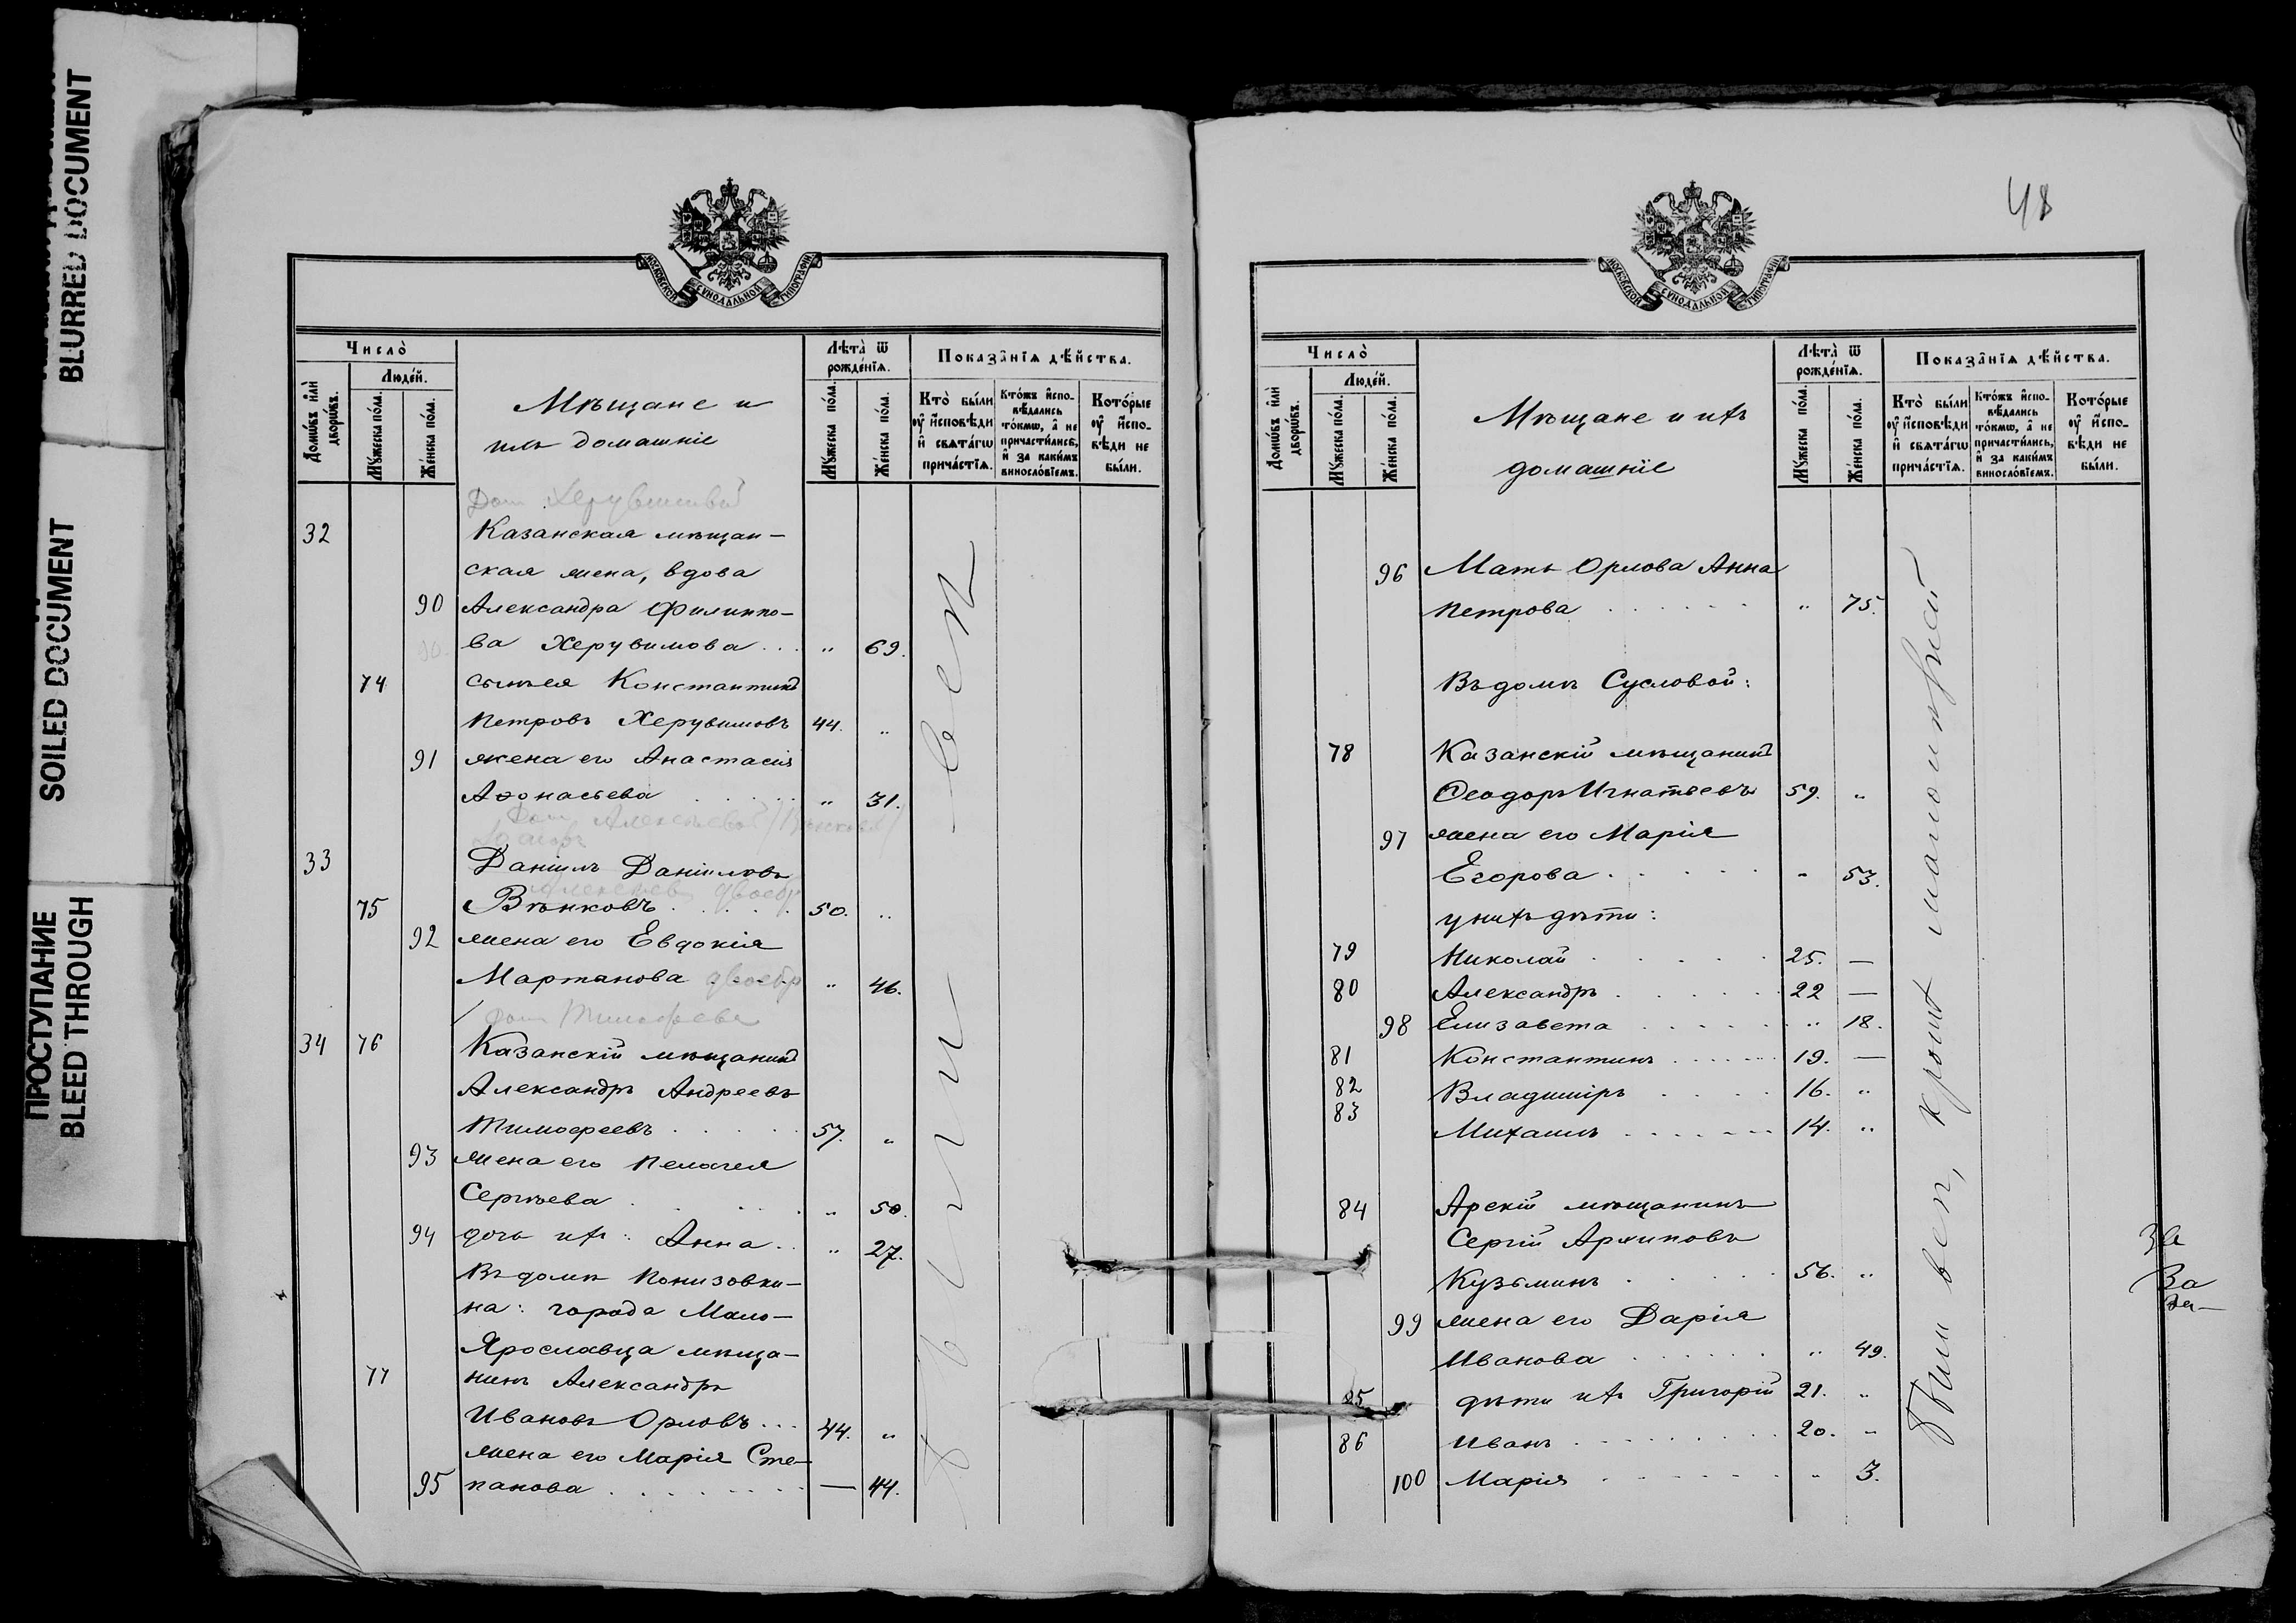 BLURRED DOCUMENT
SOILED DOCUMENT
ПРОСТУПАНИЕ
BLEED THROUGH
МОСКОВСКОЙ СѴНОДАЛЬНОЙ ТИПОГРАФІИ
Число̀
Домѡ́въ и҆лѝ дворѡ́въ.
Люде́й.
Мꙋ́жеска по́ла.
Же́нска по́ла.
Мѣщане и
ихъ домашніе
Лѣта̀ ѿ рожде́нїѧ.
Мꙋ́жеска по́ла.
Же́нска по́ла.
Показа̑нїѧ дѣ́йства.
Кто̀ бы́ли ᲂу҆ и҆́сповѣди и҆ свѧта́гѡ прича́стїѧ.
Кто́жъ и҆спо-вѣ́дались то́кмѡ, а҆ не причасти́лись, и҆ за каки́мъ виносло́вїемъ.
Кото́рые ᲂу҆ и҆́спо-вѣди не бы́ли.
Дом Херувимовой
32 Казанская мѣщан-
ская жена, вдова
90 Александра Филиппо-
ва Херувимова... " 69.
74 сынъ ея Константинъ
Петровъ Херувимовъ 44. "
91 жена его Анастасія
Аѳонасьева . . . . " 31.
33 Даніилъ Данииловъ
75 Вѣнковъ . . . . . 50. "
92 жена его Евдокія
Мартанова " 46.
Дом Тимофеева
34 76 Казанскій мѣщанинъ
Александръ Андреевъ
Тимофеевъ . . . . . 57. "
93 жена его Пелагея
Сергѣева . . . . . " 50.
94 дочь ихъ: Анна.. " 27.
Въ домѣ Понизовки-
на: города Мало-
Ярославца мѣща-
77 нинъ Александръ
Ивановъ Орловъ... 44. "
жена его Марія Сте-
95 панова . . . . . . . . — 44.
были вси
48
МОСКОВСКОЙ СѴНОДАЛЬНОЙ ТИПОГРАФІИ
Число̀
Домѡ́въ и҆лѝ дворѡ́въ.
Люде́й.
Мꙋ́жеска по́ла.
Же́нска по́ла.
Мѣщане и ихъ
домашніе
Лѣта̀ ѿ рожде́нїѧ.
Мꙋ́жеска по́ла.
Же́нска по́ла.
Показа̑нїѧ дѣ́йства.
Кто̀ бы́ли ᲂу҆ и҆́сповѣди и҆ свѧта́гѡ прича́стїѧ.
Кто́жъ и҆спо-вѣ́дались то́кмѡ, а҆ не причасти́лись, и҆ за каки́мъ виносло́вїемъ.
Кото́рые ᲂу҆ и҆́спо-вѣди не бы́ли.
96 Мать Орлова Анна
Петрова . . . . . . " 75.
Въ домѣ Сусловой:
78 Казанскій мѣщанинъ
Ѳеодоръ Игнатьевъ 59. "
97 жена его Марія
Егорова . . . . . " 53.
у нихъ дѣти:
79 Николай . . . . . 25. —
80 Александръ . . . . . 22 —
98 Елизавета . . . . . " 18.
81 Константинъ . . . . . . 19. —
82 Владиміръ . . . . 16. "
83 Михаилъ . . . . . . 14. "
84 Арскій мѣщанинъ
Сергій Архиповъ
Кузьминъ . . . . . 56. "
99 жена его Дарія
Иванова . . . . . . " 49.
85 дѣти ихъ Григорій 21. "
86 Иванъ . . . . . . . . . 20. "
100 Марія . . . . . . . " 3.
были вси, кромѣ
За
За